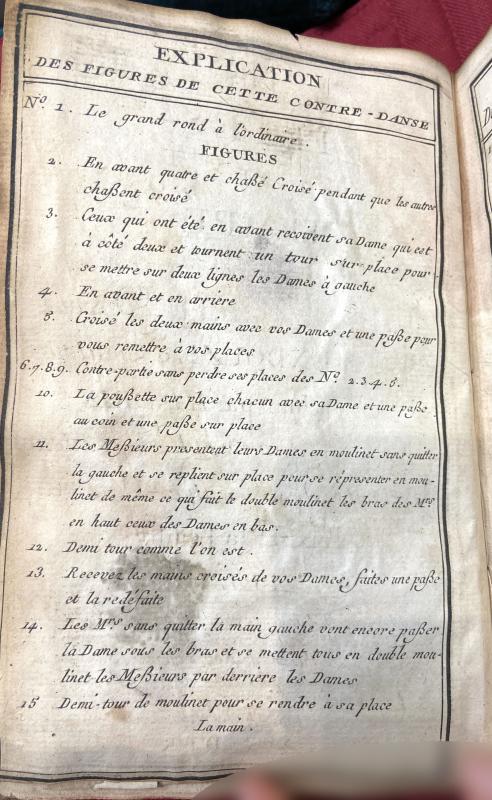 EXPLICATION
DES FIGURES DE CETTE CONTRE-DANSE
Nº 1. Le grand rond à l'ordinaire.
FIGURES
2. En avant quatre et chaßé Croisé pendant que les autres
chaßent croisé
3. Ceux qui ont été en avant recoivent sa Dame qui est
à côté deux et tournent un tour sur place pour
se mettre sur deux lignes les Dames à gauche
4. En avant et en arriere
5. Croisé les deux mains avec vos Dames et une paße pour
vous remettre à vos places
6.7.8.9. Contre-partie sans perdre ses places des Nº 2.3.4.5.
10. La poußette sur place chacun avec sa Dame et une paße
au coin et une paße sur place
11. Les Meßieurs presentent leurs Dames en moulinet sans quitter
la gauche et se replient sur place pour se représenter en mou-
linet de même ce qui fait le double moulinet les bras des Mrs
en haut ceux des Dames en bas.
12. Demi tour comme l'on est.
13. Recevez les mains croisés de vos Dames, faites une paße
et la redéfaite
14. Les Mrs sans quitter la main gauche vont encore paßer
la Dame sous les bras et se mettent tous en double mou-
linet les Meßieurs par derriere les Dames
15 Demi-tour de moulinet pour se rendre à sa place
La main.